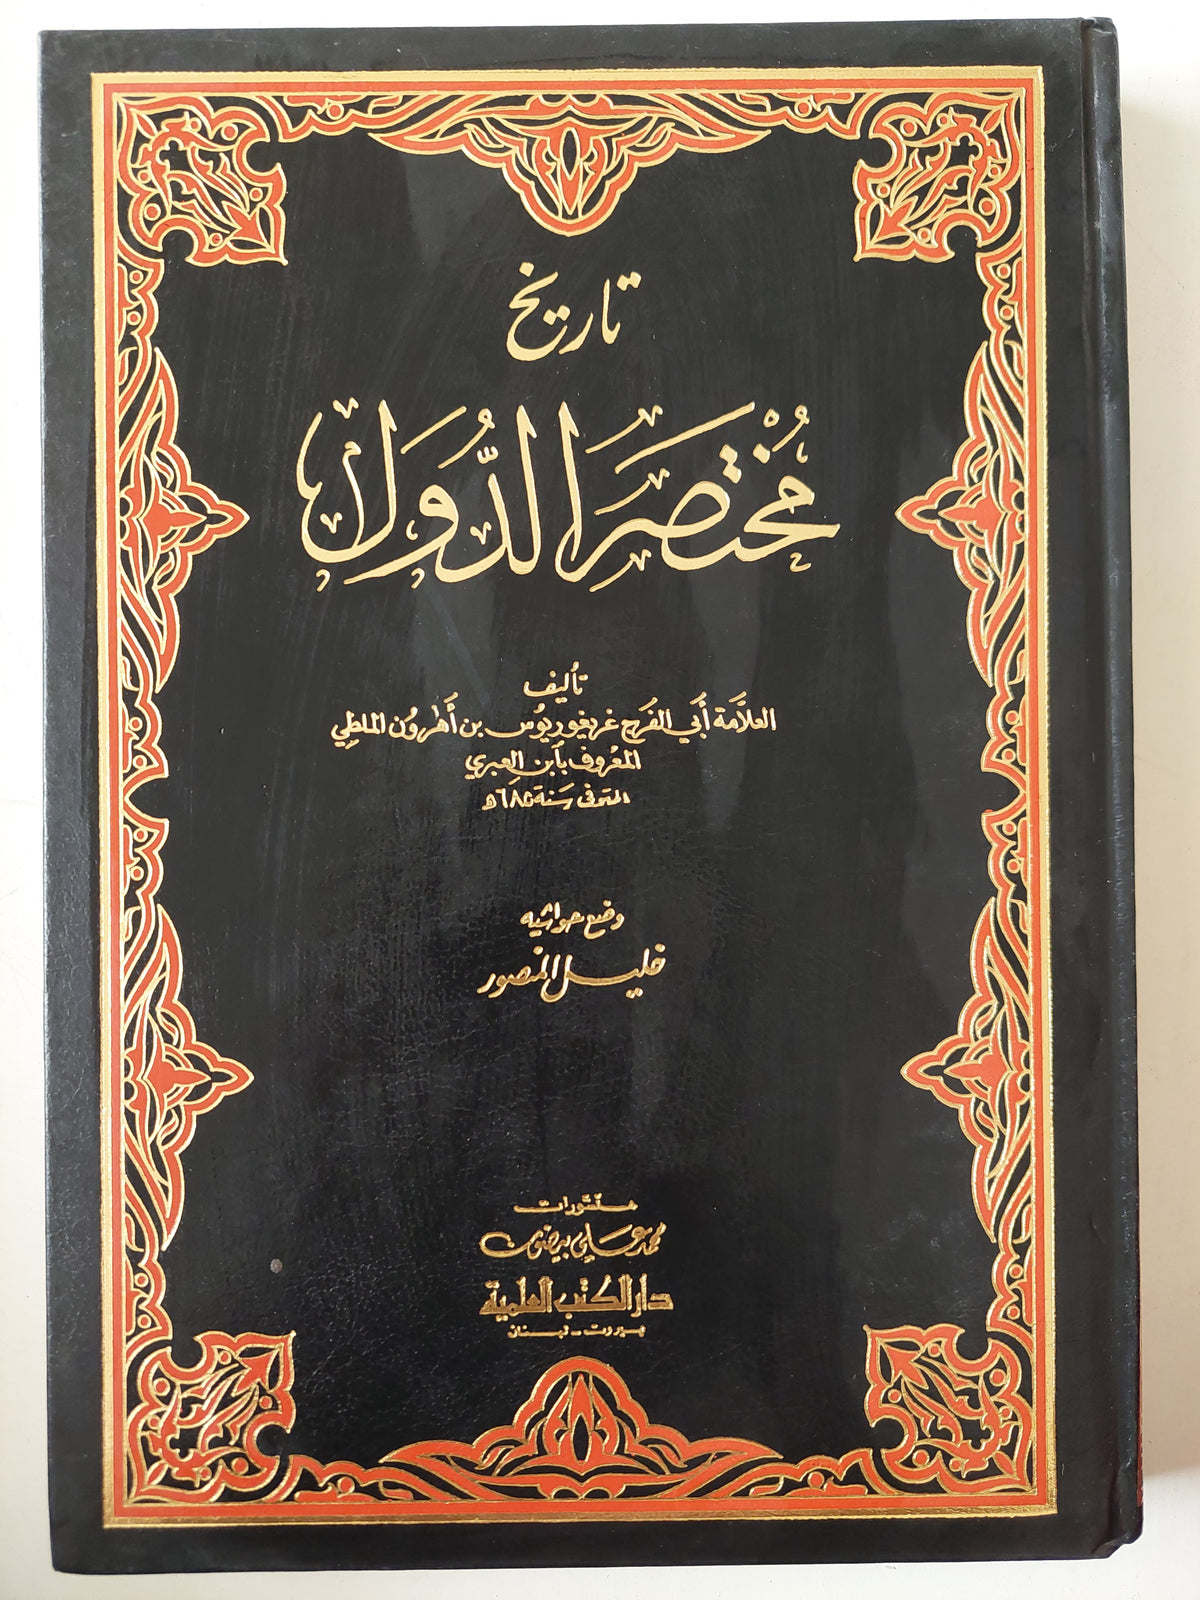 تاريخ
مُختصَر الدُّوَل
تأليف
العلاَّمة أبَي الفَرج غريغوريوُس بن أهَرون الملطِي
المعْروف بآبن العِبري
المتوفى سَنة ٦٨٥ هـ
وضع حواشيه
خليل المنصور
منشورات
محمد علي بيضون
دار الكتب العلمية
بيروت - لبنان